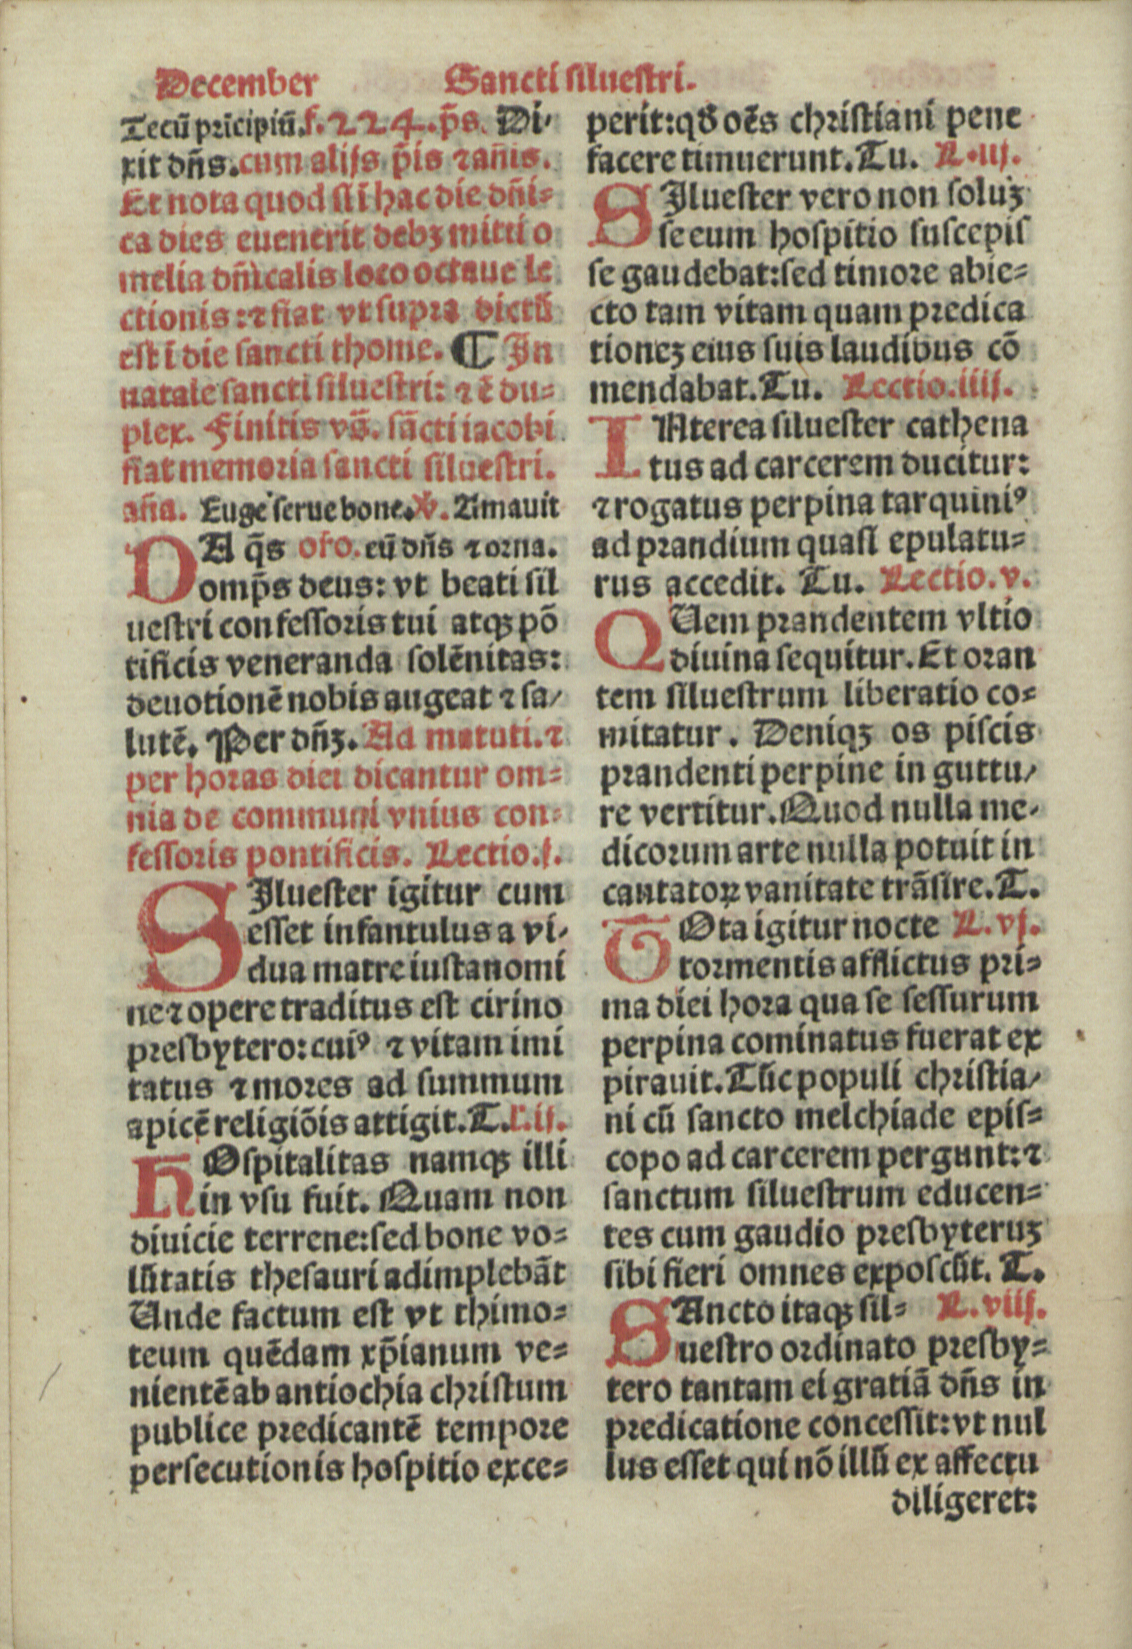 December Sancti siluestri.
Tecū prīcipiū. f. 224. p̄s. Di-
xit dn̄s. cum alijs p̄is ⁊ an̄is.
Et nota quod si ī hac die dn̄i-
ca dies euenerit debꝫ mitti o
melia dn̄icalis loco octaue le
ctionis: ⁊ fiat vt supra dictū
est ī die sancti thome. ¶ In
natale sancti siluestri: ⁊ ē du-
plex. Finitis vs̄. sācti iacobi
fiat memoria sancti siluestri.
an̄a. Euge serue bone. ℣. Amauit
DA q̄s oro. eū dn̄s ⁊ orna.
omp̄s deus: vt beati sil
uestri confessoris tui atqꝫ pō
tificis veneranda solēnitas:
deuotionē nobis augeat ⁊ sa-
lutē. Per dn̄ꝫ. Ad matuti. ⁊
per horas diei dicantur om-
nia de communi vnius con-
fessoris pontificis. Lectio. j.
SIluester igitur cum
esset infantulus a vi-
dua matre iusta nomi
ne ⁊ opere traditus est cirino
presbytero: cuiꝰ ⁊ vitam imi
tatus ⁊ mores ad summum
apicē religiōis attigit. T. L. ij.
HOspitalitas namqꝫ illi
in vsu fuit. Quam non
diuicie terrene: sed bone vo-
lūtatis thesauri adimplebāt
Unde factum est vt thimo-
teum quēdam xp̄ianum ve-
nientē ab antiochia christum
publice predicantē tempore
persecutionis hospitio exce-
perit: qd̄ oēs christiani pene
facere timuerunt. Tu. L. iij.
SIluester vero non soluꝫ
se eum hospitio suscepis
se gaudebat: sed timore abie-
cto tam vitam quam predica
tioneꝫ eius suis laudibus cō
mendabat. Tu. Lectio. iiij.
INterea siluester cathena
tus ad carcerem ducitur:
⁊ rogatus perpina tarquiniꝰ
ad prandium quasi epulatu-
rus accedit. Tu. Lectio. v.
QUem prandentem vltio
diuina sequitur. Et oran
tem siluestrum liberatio co-
mitatur. Deniqꝫ os piscis
prandenti perpine in guttu-
re vertitur. Quod nulla me-
dicorum arte nulla potuit in
cantatoꝝ vanitate trāsire. T.
TOta igitur nocte L. vj.
tormentis afflictus pri-
ma diei hora qua se sessurum
perpina cominatus fuerat ex
pirauit. Tūc populi christia-
ni cū sancto melchiade epis-
copo ad carcerem pergunt: ⁊
sanctum siluestrum educen-
tes cum gaudio presbyteruꝫ
sibi fieri omnes exposcūt. T.
SAncto itaqꝫ sil- L. viij.
uestro ordinato presby-
tero tantam ei gratiā dn̄s in
predicatione concessit: vt nul
lus esset qui nō illū ex affectu
diligeret: